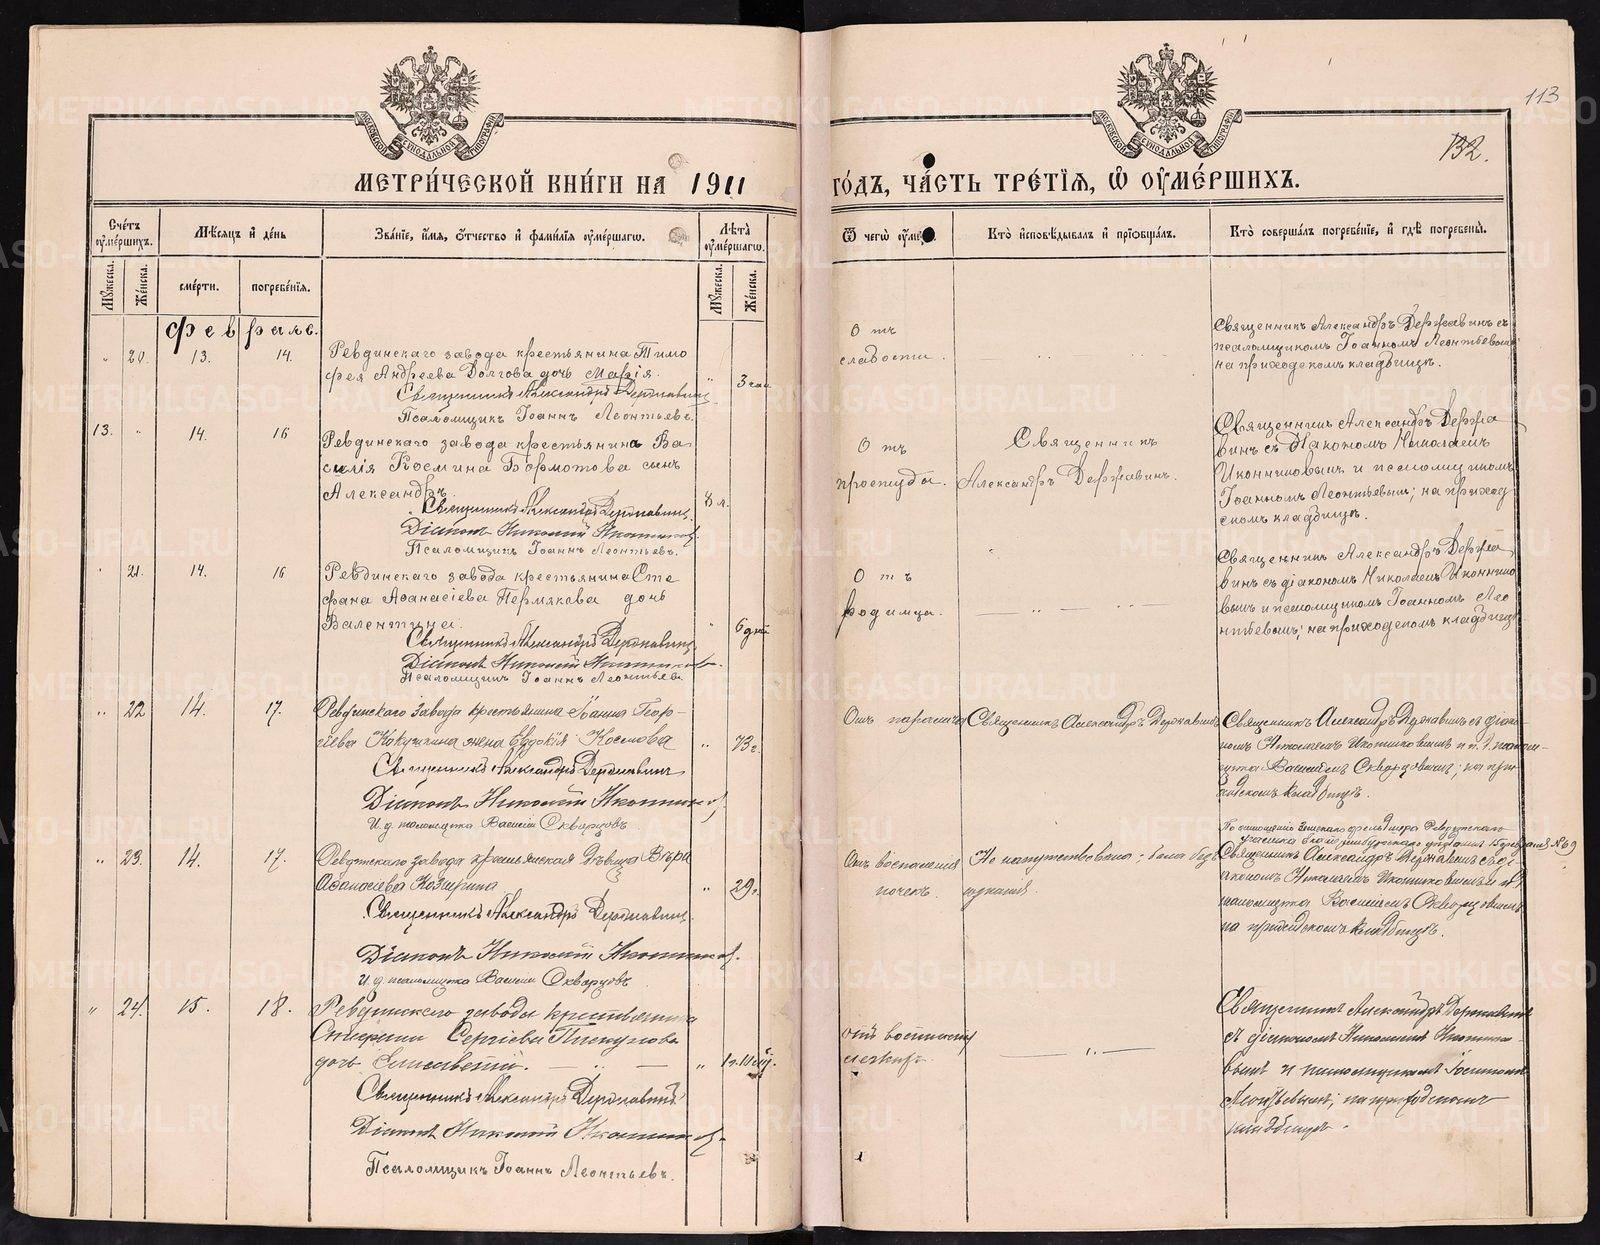 113
132.
МЕТРИ́ЧЕСКОЙ КНИ́ГИ НА 1911
ГО́ДЪ, ЧА́СТЬ ТРЕ́ТІѦ, Ѽ ОУМЕ́РШИХЪ.
Сче́тъ оумє́ршихъ.
Мѣ́сѧцъ и҆ де́нь
Зва́нїе, и҆́мѧ, ѻ҆́тчество и҆ фами́лїѧ оумє́ршагѡ.
Лѣ́та оумє́ршагѡ.
Ѿ чегѡ̀
Кто̀ и҆сповѣ́дывалъ и҆ прїѡбща́лъ.
Кто̀ соверша́лъ погребе́нїе, и҆ гдѣ̀ погребены̀.
Мꙋжеска.
Же́нска.
сме́рти.
погребе́нїѧ.
Мꙋжеска.
Же́нска.
Февраль.
" 20. 13. 14.
Ревдинскаго завода крестьянина Тимо
фея Андреева Долгова дочь Марія.
" 3 час
Священникъ Александръ Державинъ
Псаломщикъ Іоаннъ Леонтьевъ.
Отъ
слабости.
Священникъ Александръ Державинъ съ
псаломщикомъ Іоанномъ Леонтьевымъ
на приходскомъ кладбищѣ.
13. " 14. 16
Ревдинскаго завода крестьянина Ва-
силія Космина Бормотова сынъ
Александръ.
8 л.
Священникъ Александръ Державинъ.
Діаконъ Николай Иконниковъ.
Псаломщикъ Іоаннъ Леонтьевъ.
Отъ
простуды.
Священникъ
Александръ Державинъ.
Священникъ Александръ Держа
винъ съ Діакономъ Николаемъ
Иконниковымъ и псаломщикомъ
Іоанномъ Леонтьевымъ; на приход
скомъ кладбищѣ.
" 21. 14. 16
Ревдинскаго завода крестьянина Сте
фана Аѳанасіева Пермякова дочь
Валентина.
" 6 дней
Священникъ Александръ Державинъ
Діаконъ Николай Иконниковъ.
Псаломщикъ Іоаннъ Леонтьевъ
Отъ
родимца.
— " — " —
Священникъ Александръ Держа
винъ съ діакономъ Николаемъ Иконнико
вымъ и псаломщикомъ Іоанномъ Лео
нтьевымъ; на приходскомъ кладбищѣ
" 22 14. 17.
Ревдинскаго завода крестьянина Іоанна Геор-
гіева Кокушкина жена Евдокія Космова
" 73 г.
Священникъ Александръ Державинъ
Діаконъ Николай Иконниковъ.
И. д. псаломщика Василій Скварцовъ.
Отъ паралича
Священникъ Александръ Державинъ
Священникъ Александръ Державинъ съ діако-
номъ Николаемъ Иконниковымъ и и. д. псалом-
щика Василіемъ Скварцовымъ; на при-
ходскомъ кладбищѣ.
" 23. 14. 17.
Ревдинскаго завода крестьянская дѣвица Вѣра
Аѳанасіева Козырина
" 29 г.
Священникъ Александръ Державинъ.
Діаконъ Николай Иконниковъ.
И. д. псаломщика Василій Скварцовъ.
Отъ воспаленія
почекъ.
Не напутствована; была безъ
сознанія.
По отношенію Земскаго фельдшера Ревдинскаго
№ 69
Священникъ Александръ Державинъ съ ді-
акономъ Николаемъ Иконниковымъ и и. д.
псаломщика Василіемъ Скварцовымъ
на приходскомъ кладбищѣ.
" 24. 15. 18.
Ревдинскаго завода крестьянина
Сергіева Пискунова
дочь Елисавета. — " —
" 1 г. 11 мѣс.
Священникъ Александръ Державинъ
Діаконъ Николай Иконниковъ.
Псаломщикъ Іоаннъ Леонтьевъ.
отъ воспаленія
легкихъ
— " —
Священникъ Александръ Державинъ
съ діакономъ Николаемъ Иконнико-
вымъ и псаломщикомъ Іоанномъ
Леонтьевымъ; на приходскомъ
кладбищѣ.